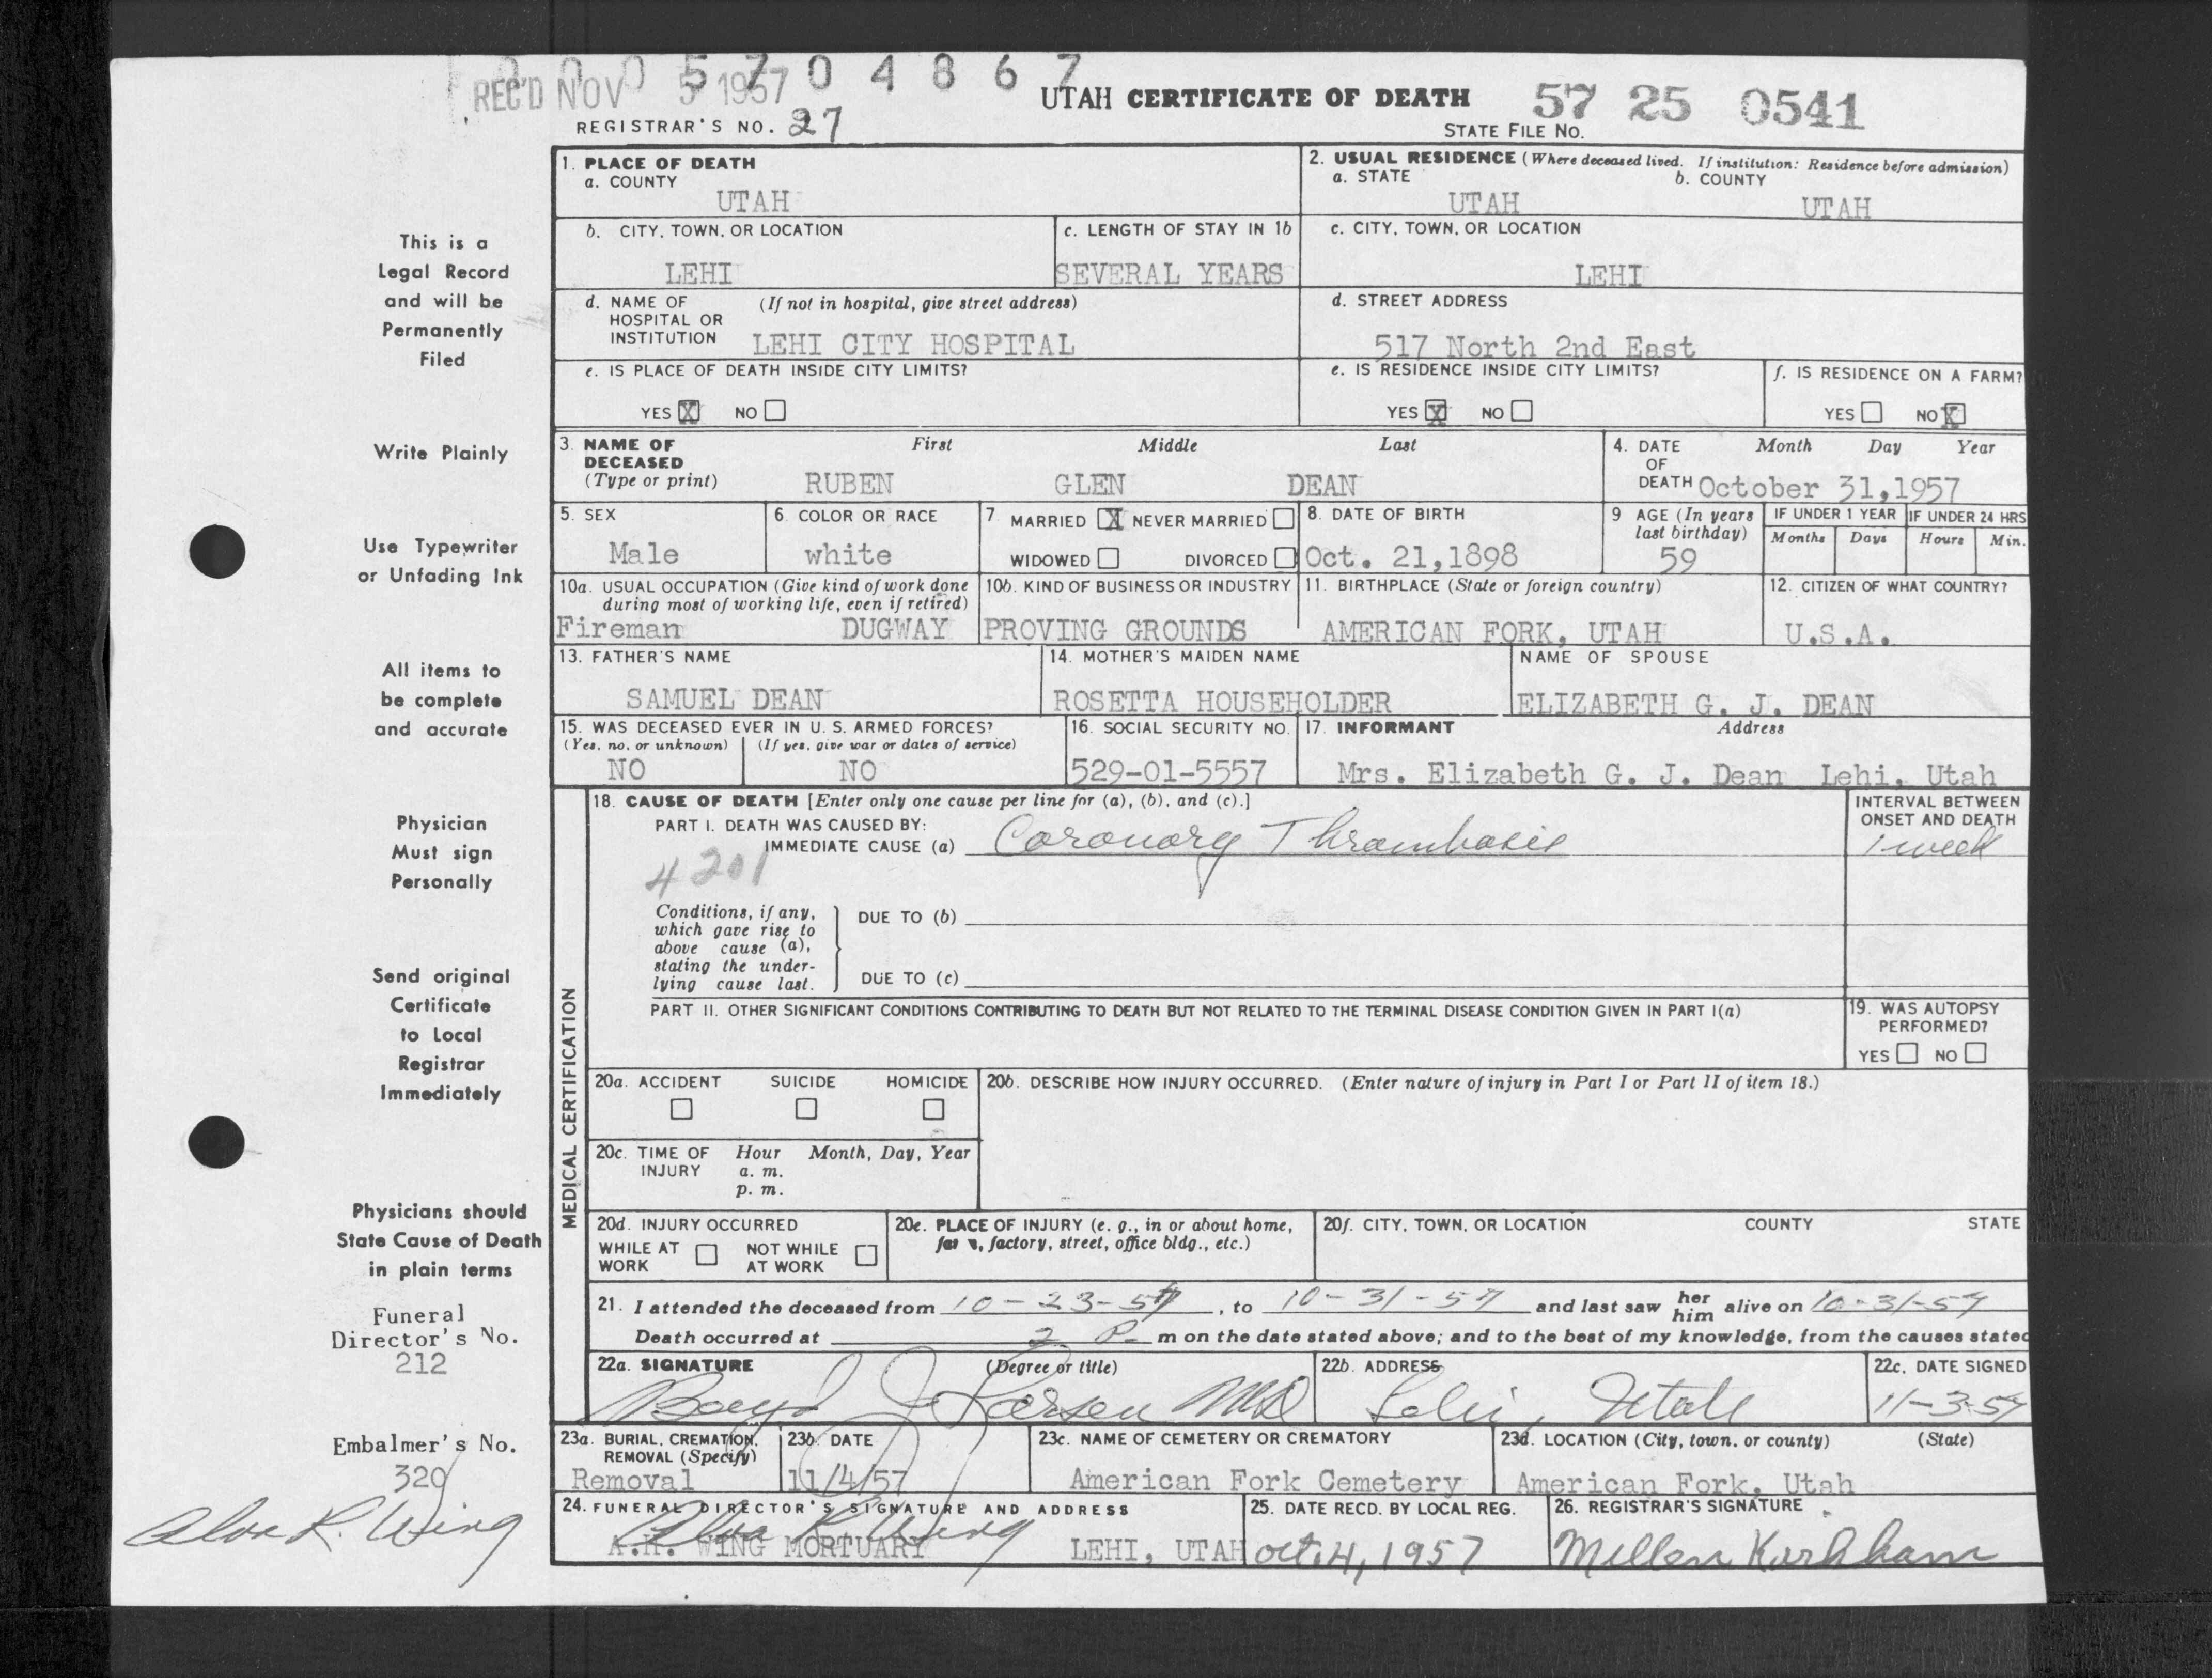 0005704867
REC'D NOV 5 1957
UTAH CERTIFICATE OF DEATH
57 25 0541
REGISTRAR'S NO. 27
STATE FILE NO.
This is a
Legal Record
and will be
Permanently
Filed
Write Plainly
Use Typewriter
or Unfading Ink
All items to
be complete
and accurate
Physician
Must sign
Personally
Send original
Certificate
to Local
Registrar
Immediately
Physicians should
State Cause of Death
in plain terms
Funeral
Director's No.
212
Embalmer's No.
320
Alva R. Wing
1. PLACE OF DEATH
a. COUNTY
UTAH
2. USUAL RESIDENCE (Where deceased lived. If institution: Residence before admission)
a. STATE b. COUNTY
UTAH UTAH
b. CITY, TOWN, OR LOCATION
LEHI
c. LENGTH OF STAY IN 1b
SEVERAL YEARS
c. CITY, TOWN, OR LOCATION
LEHI
d. NAME OF (If not in hospital, give street address)
HOSPITAL OR
INSTITUTION LEHI CITY HOSPITAL
d. STREET ADDRESS
517 North 2nd East
e. IS PLACE OF DEATH INSIDE CITY LIMITS?
YES X NO
e. IS RESIDENCE INSIDE CITY LIMITS?
YES X NO
f. IS RESIDENCE ON A FARM?
YES NO X
3. NAME OF First Middle Last
DECEASED
(Type or print) RUBEN GLEN DEAN
4. DATE Month Day Year
OF
DEATH October 31,1957
5. SEX
Male
6. COLOR OR RACE
white
7 MARRIED X NEVER MARRIED
WIDOWED DIVORCED
8. DATE OF BIRTH
Oct. 21,1898
9 AGE (In years
last birthday)
59
IF UNDER 1 YEAR IF UNDER 24 HRS
Months Days Hours Min.
10a. USUAL OCCUPATION (Give kind of work done
during most of working life, even if retired)
Fireman DUGWAY
10b. KIND OF BUSINESS OR INDUSTRY
PROVING GROUNDS
11. BIRTHPLACE (State or foreign country)
AMERICAN FORK, UTAH
12. CITIZEN OF WHAT COUNTRY?
U.S.A.
13. FATHER'S NAME
SAMUEL DEAN
14. MOTHER'S MAIDEN NAME
ROSETTA HOUSEHOLDER
NAME OF SPOUSE
ELIZABETH G. J. DEAN
15. WAS DECEASED EVER IN U. S. ARMED FORCES?
(Yes, no, or unknown) (If yes, give war or dates of service)
NO NO
16. SOCIAL SECURITY NO.
529-01-5557
17. INFORMANT Address
Mrs. Elizabeth G. J. Dean Lehi, Utah
MEDICAL CERTIFICATION
18. CAUSE OF DEATH [Enter only one cause per line for (a), (b), and (c).]
PART I. DEATH WAS CAUSED BY:
IMMEDIATE CAUSE (a) Coronary Thrombosis
4201
INTERVAL BETWEEN
ONSET AND DEATH
1 week
Conditions, if any,
which gave rise to
above cause (a),
stating the under-
lying cause last.
DUE TO (b)
DUE TO (c)
PART II. OTHER SIGNIFICANT CONDITIONS CONTRIBUTING TO DEATH BUT NOT RELATED TO THE TERMINAL DISEASE CONDITION GIVEN IN PART I(a)
19. WAS AUTOPSY
PERFORMED?
YES NO
20a. ACCIDENT SUICIDE HOMICIDE
20b. DESCRIBE HOW INJURY OCCURRED. (Enter nature of injury in Part I or Part II of item 18.)
20c. TIME OF Hour Month, Day, Year
INJURY a. m.
p. m.
20d. INJURY OCCURRED
WHILE AT NOT WHILE
WORK AT WORK
20e. PLACE OF INJURY (e. g., in or about home,
farm, factory, street, office bldg., etc.)
20f. CITY, TOWN, OR LOCATION COUNTY STATE
21. I attended the deceased from 10-23-57, to 10-31-57 and last saw her him alive on 10-31-57
Death occurred at 2 P. m on the date stated above; and to the best of my knowledge, from the causes stated
22a. SIGNATURE (Degree or title)
Boyd J Larsen MD
22b. ADDRESS
Lehi, Utah
22c. DATE SIGNED
11-3-57
23a. BURIAL, CREMATION,
REMOVAL (Specify)
Removal
23b. DATE
11/4/57
23c. NAME OF CEMETERY OR CREMATORY
American Fork Cemetery
23d. LOCATION (City, town, or county) (State)
American Fork, Utah
24. FUNERAL DIRECTOR'S SIGNATURE AND ADDRESS
Alva R. Wing
A.H. WING MORTUARY LEHI, UTAH
25. DATE RECD. BY LOCAL REG.
oct. 4, 1957
26. REGISTRAR'S SIGNATURE
Millen Kirkham